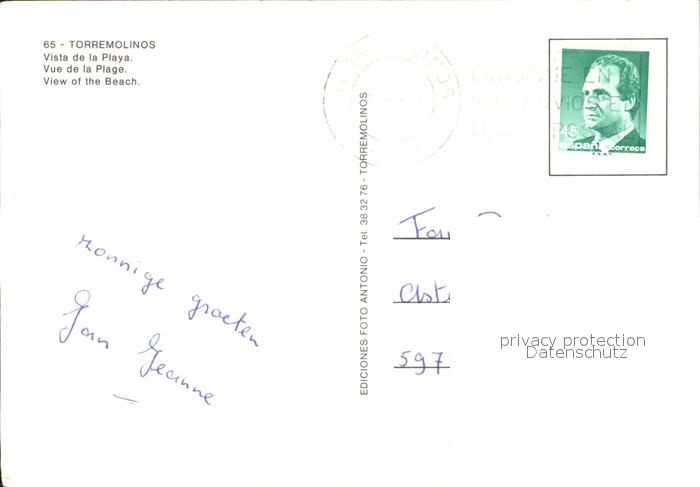 65 - TORREMOLINOS
Vista de la Playa.
Vue de la Plage.
View of the Beach.
CONSIGNE EN
SUS ENVIOS EL
CODIGO POSTAL
45
españa correos
EDICIONES FOTO ANTONIO - Tel. 38 32 76 - TORREMOLINOS
zonnige groeten
Jan Jeanne
Fa
Ast
597
privacy protection
Datenschutz